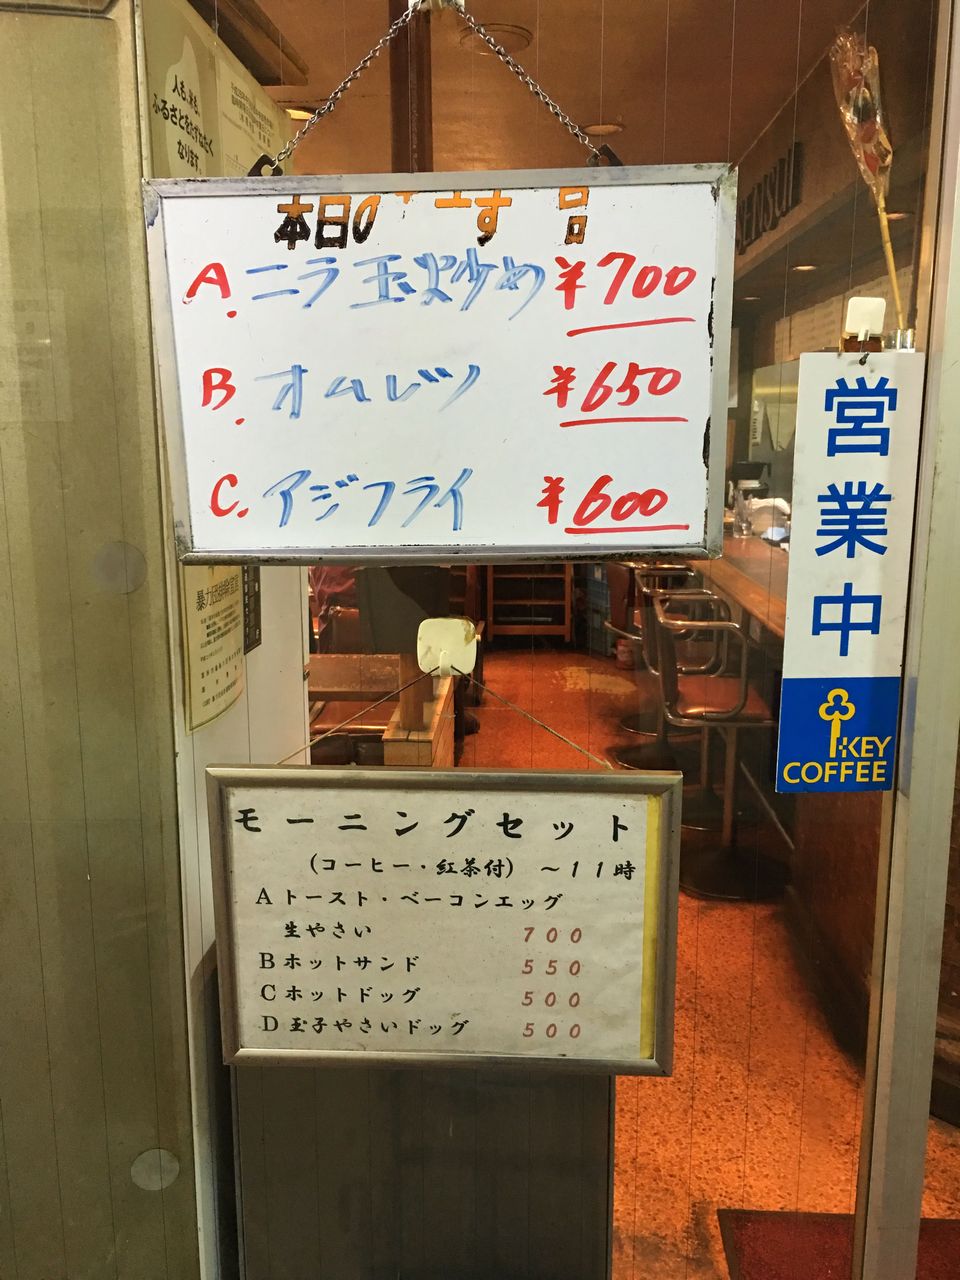 人も、米も、
ふるさとをたずねたく
なります
本日の すす 品
A. ニラ玉炒め ¥700
B. オムレツ ¥650
C. アジフライ ¥600
営業中
KEY
COFFEE
モーニングセット
(コーヒー・紅茶付) ～11時
Aトースト・ベーコンエッグ
生やさい 700
Bホットサンド 550
Cホットドッグ 500
D玉子やさいドッグ 500